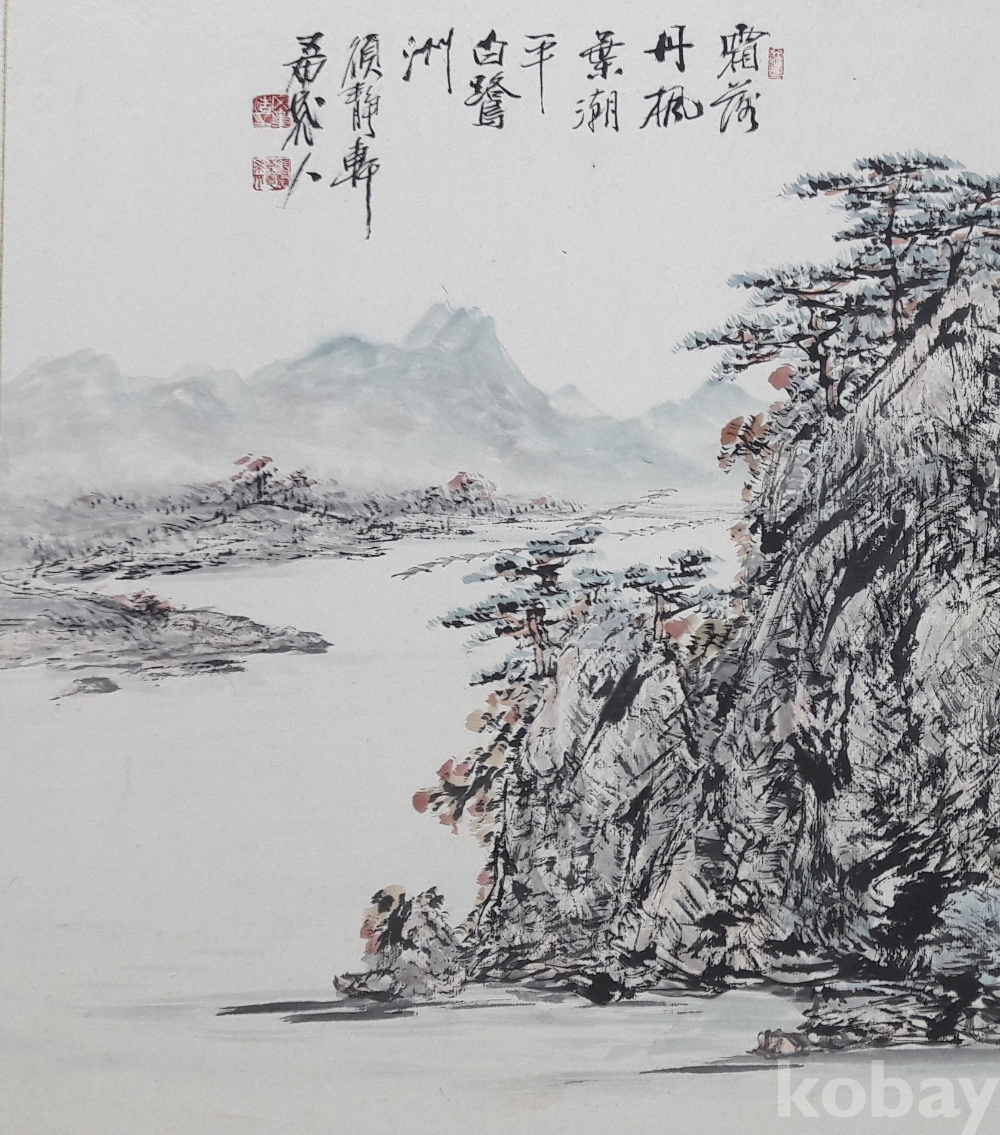 霜落
丹楓
葉潮
平
白鷺
洲
靜軒
人
kobay